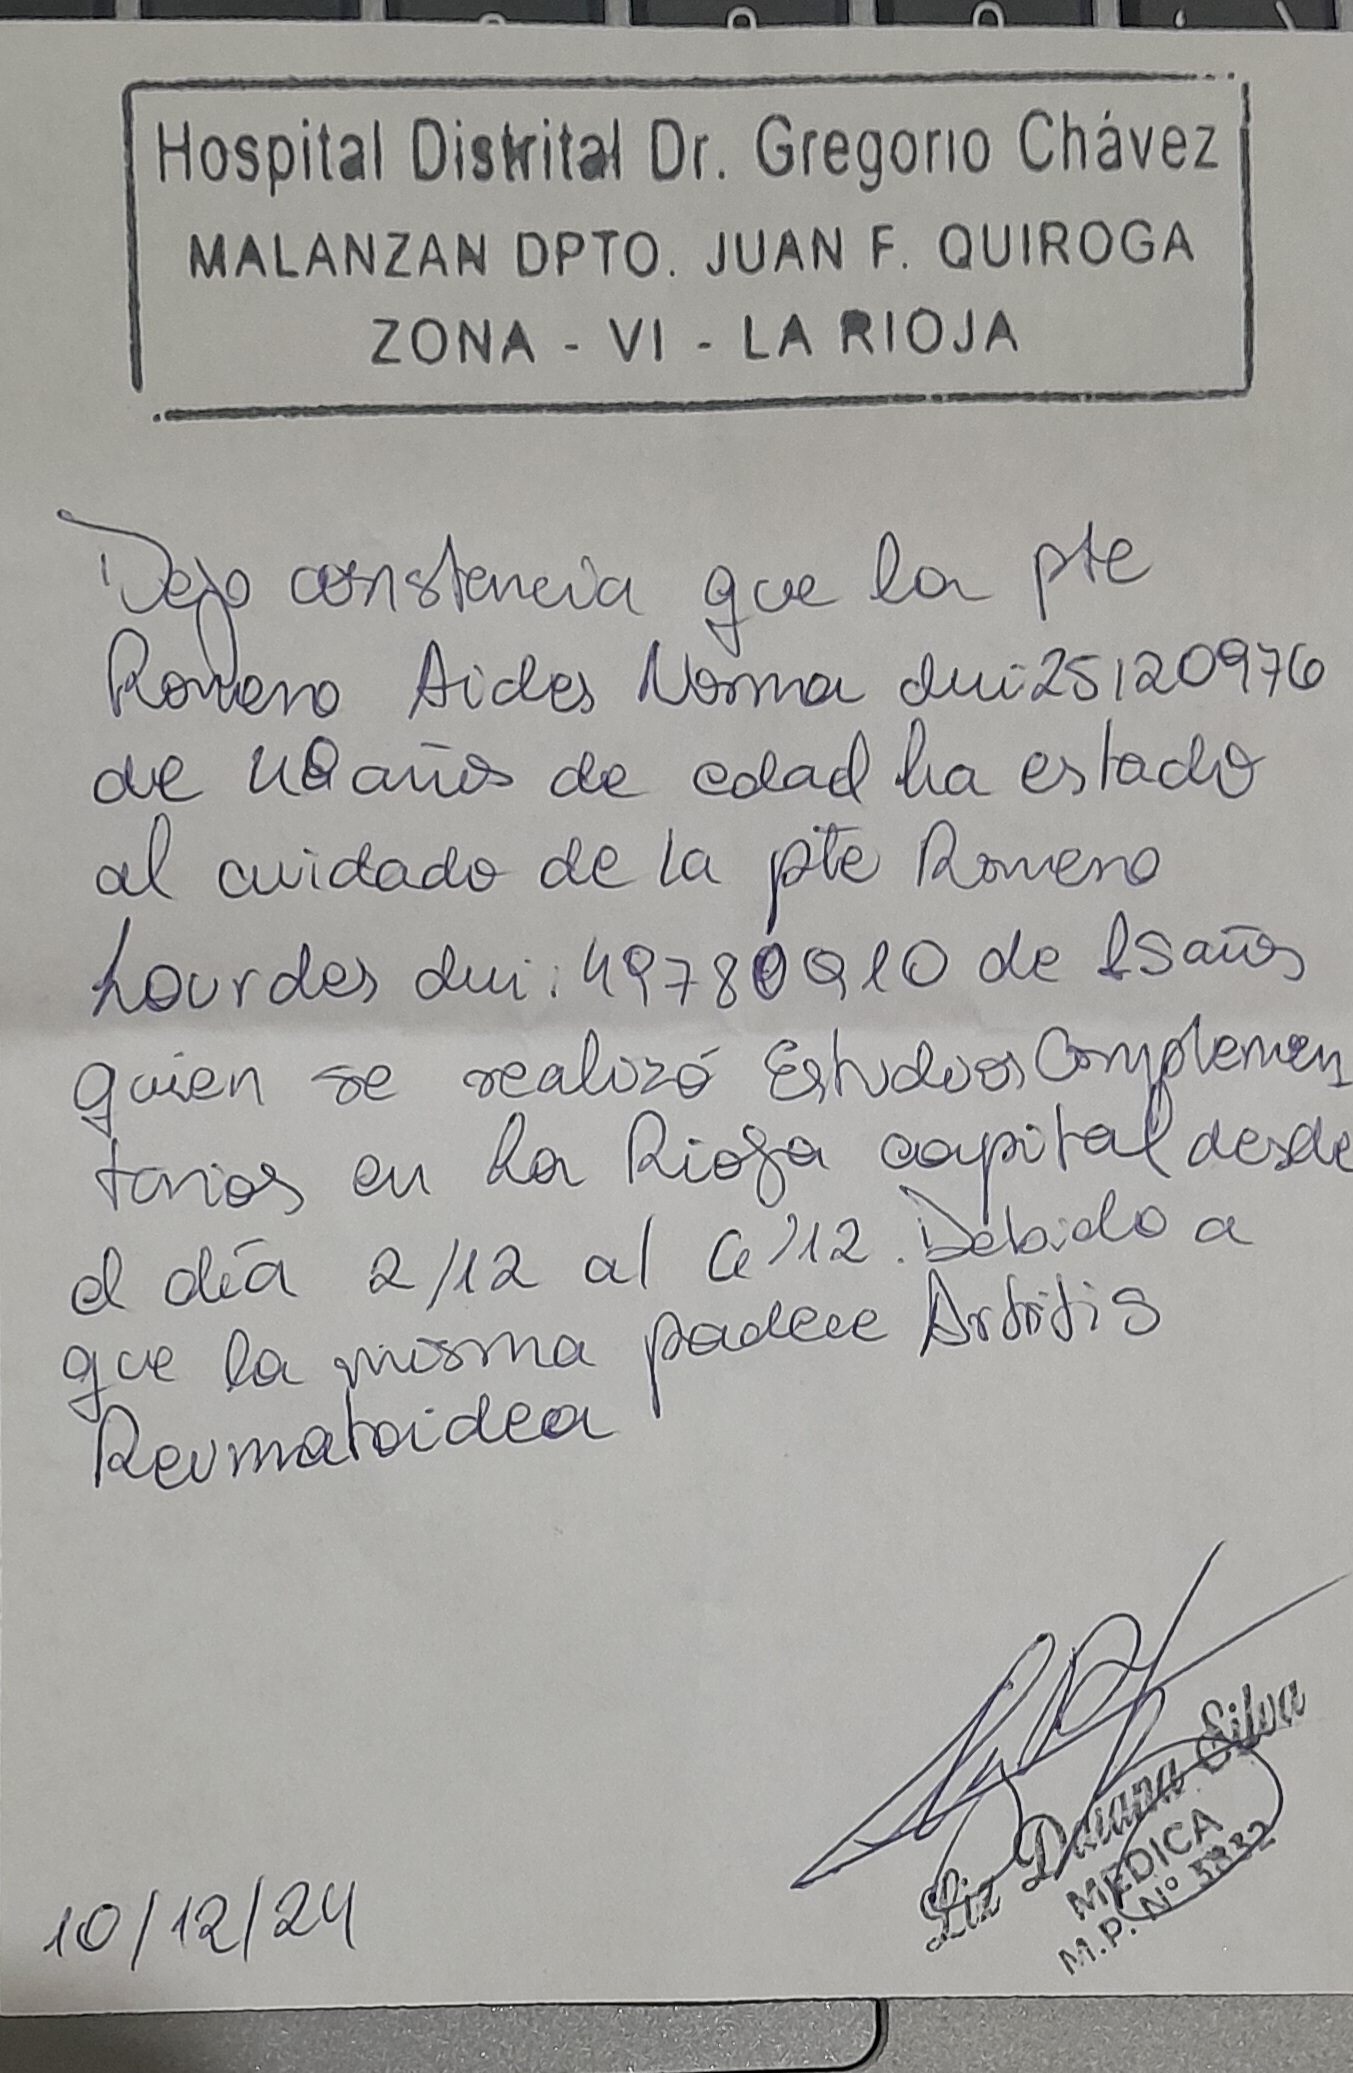 Hospital Distrital Dr. Gregorio Chávez
MALANZAN DPTO. JUAN F. QUIROGA
ZONA - VI - LA RIOJA
Dejo constancia que la pte
Romero Aides Norma dni: 25120976
de 48 años de edad ha estado
al cuidado de la pte Romero
Lourdes dni: de 15 años
quien se realizó Estudios Complemen
tarios en La Rioja capital desde
el día 2/12 al 6/12. Debido a
que la misma padece Artritis
Reumatoidea
Liz Daiana Silva
MEDICA
M.P. Nº
10/12/24